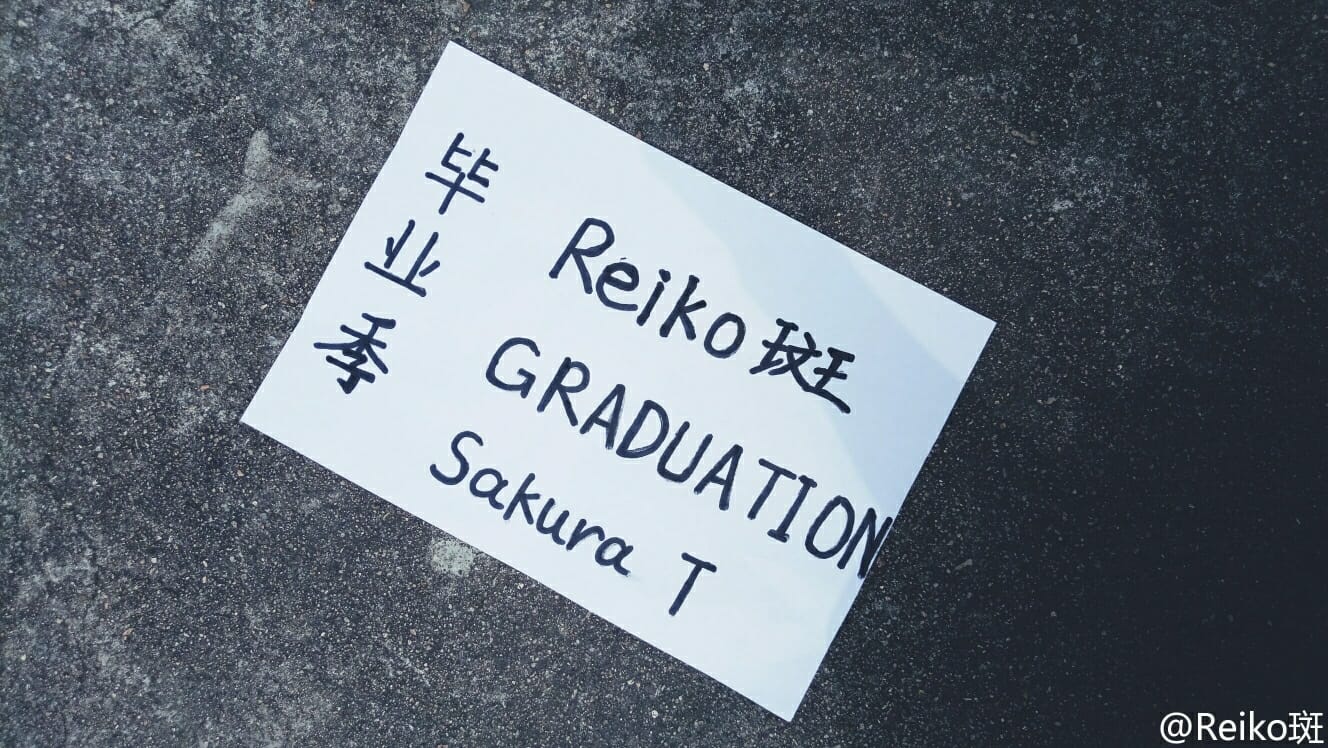 毕业季
Reiko斑
GRADUATION
Sakura T
@Reiko斑